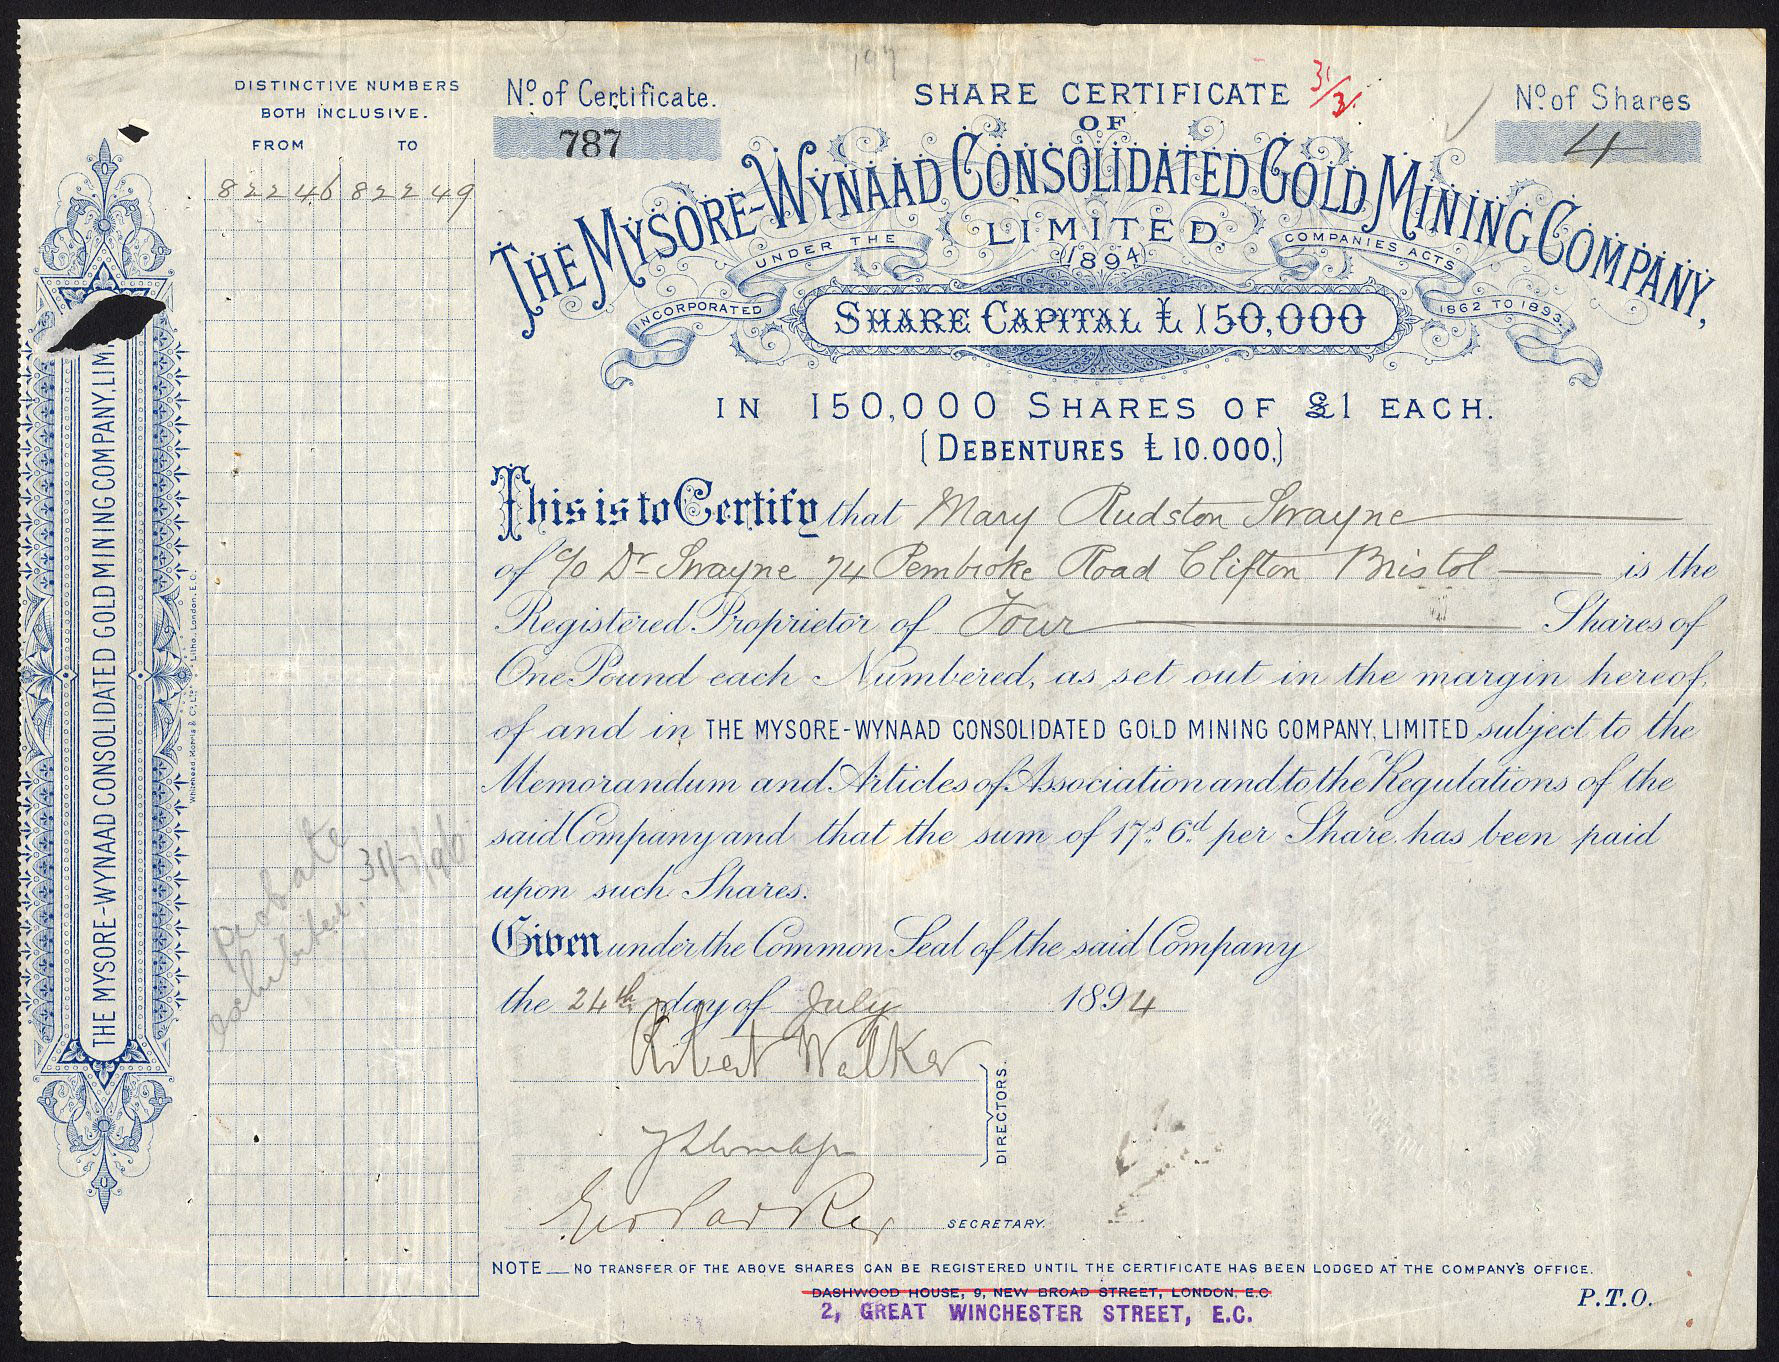 197
DISTINCTIVE NUMBERS
BOTH INCLUSIVE.
FROM TO
82246 82249
Nº of Certificate.
787
SHARE CERTIFICATE
31/3/.
Nº of Shares
4
OF
THE MYSORE-WYNAAD CONSOLIDATED GOLD MINING COMPANY,
LIMITED
INCORPORATED UNDER THE COMPANIES ACTS 1862 TO 1893.
1894
SHARE CAPITAL £150,000
IN 150,000 SHARES OF £1 EACH.
(DEBENTURES £10.000.)
This is to Certify that Mary Rudston Swayne
of c/o Dr Swayne 74 Pembroke Road Clifton Bristol is the
Registered Proprietor of Four Shares of
One Pound each Numbered, as set out in the margin hereof,
of and in THE MYSORE-WYNAAD CONSOLIDATED GOLD MINING COMPANY, LIMITED subject to the
Memorandum and Articles of Association and to the Regulations of the
said Company and that the sum of 17s 6d per Share has been paid
upon such Shares.
Given under the Common Seal of the said Company
the 24th day of July 1894
Robert Walker
DIRECTORS.
Geo Parker
SECRETARY.
NOTE — NO TRANSFER OF THE ABOVE SHARES CAN BE REGISTERED UNTIL THE CERTIFICATE HAS BEEN LODGED AT THE COMPANY'S OFFICE.
DASHWOOD HOUSE, 9, NEW BROAD STREET, LONDON, E.C.
2, GREAT WINCHESTER STREET, E.C.
P.T.O.
THE MYSORE-WYNAAD CONSOLIDATED GOLD MINING COMPANY, LIM
Whitehead, Morris & Co. Ltd. Litho. London. E.C.
Probate
exhibited. 31/7/96